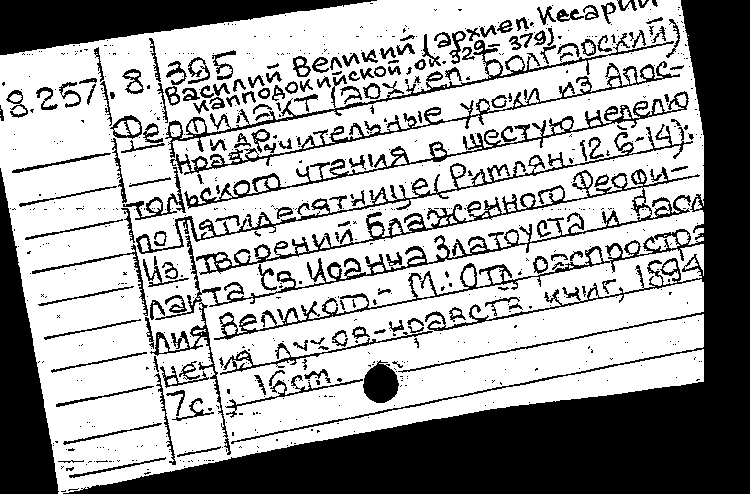 18.257 .8. 395
Василий Великий (архиеп. Кесарии
Капподокийской, ок. 329-379).
Феофилакт (архиеп. Болгарский)
и др.
Нравоучительные уроки из Апос-
тольского чтения в шестую неделю
по Пятидесятнице (Римлян. 12. 6-14):
Из творений Блаженного Феофи-
лакта, Св. Иоанна Златоуста и Васи
лия Великого.- М.: Отд. распростра
нения духов.-нравств. книг, 1894
7с.; 16см.